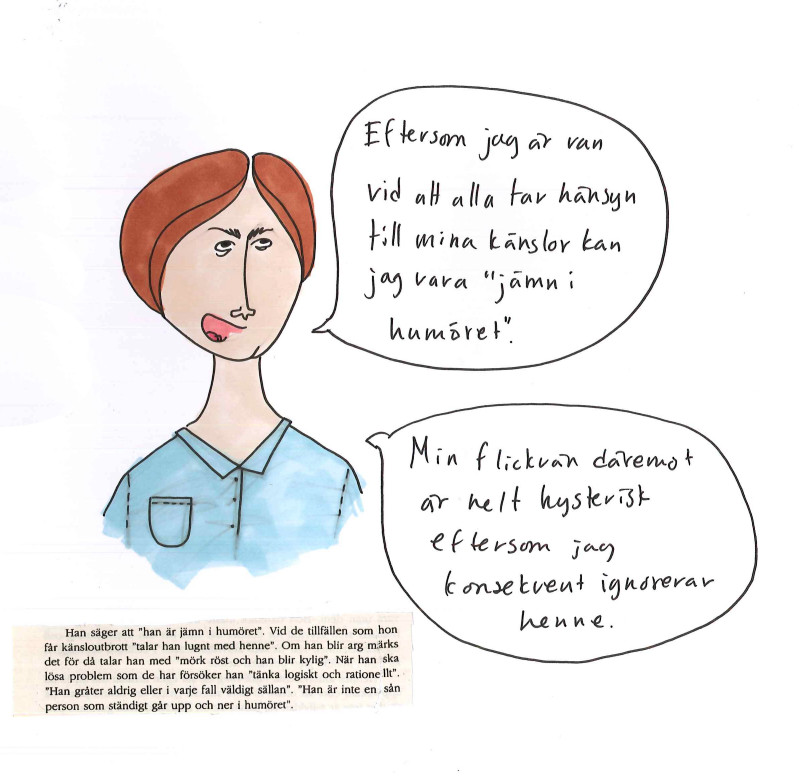 Eftersom jag är van
vid att alla tar hänsyn
till mina känslor kan
jag vara "jämn i
humöret".
Min flickvän däremot
är helt hysterisk
eftersom jag
konsekvent ignorerar
henne.
Han säger att "han är jämn i humöret". Vid de tillfällen som hon
får känsloutbrott "talar han lugnt med henne". Om han blir arg märks
det för då talar han med "mörk röst och han blir kylig". När han ska
lösa problem som de har försöker han "tänka logiskt och rationellt".
"Han gråter aldrig eller i varje fall väldigt sällan". "Han är inte en sån
person som ständigt går upp och ner i humöret".